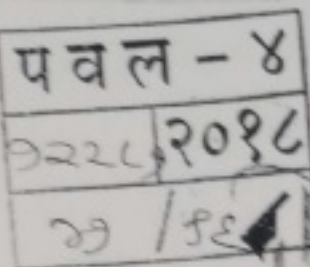 प व ल - ४
१२२८ २०१८
२१ / ९६